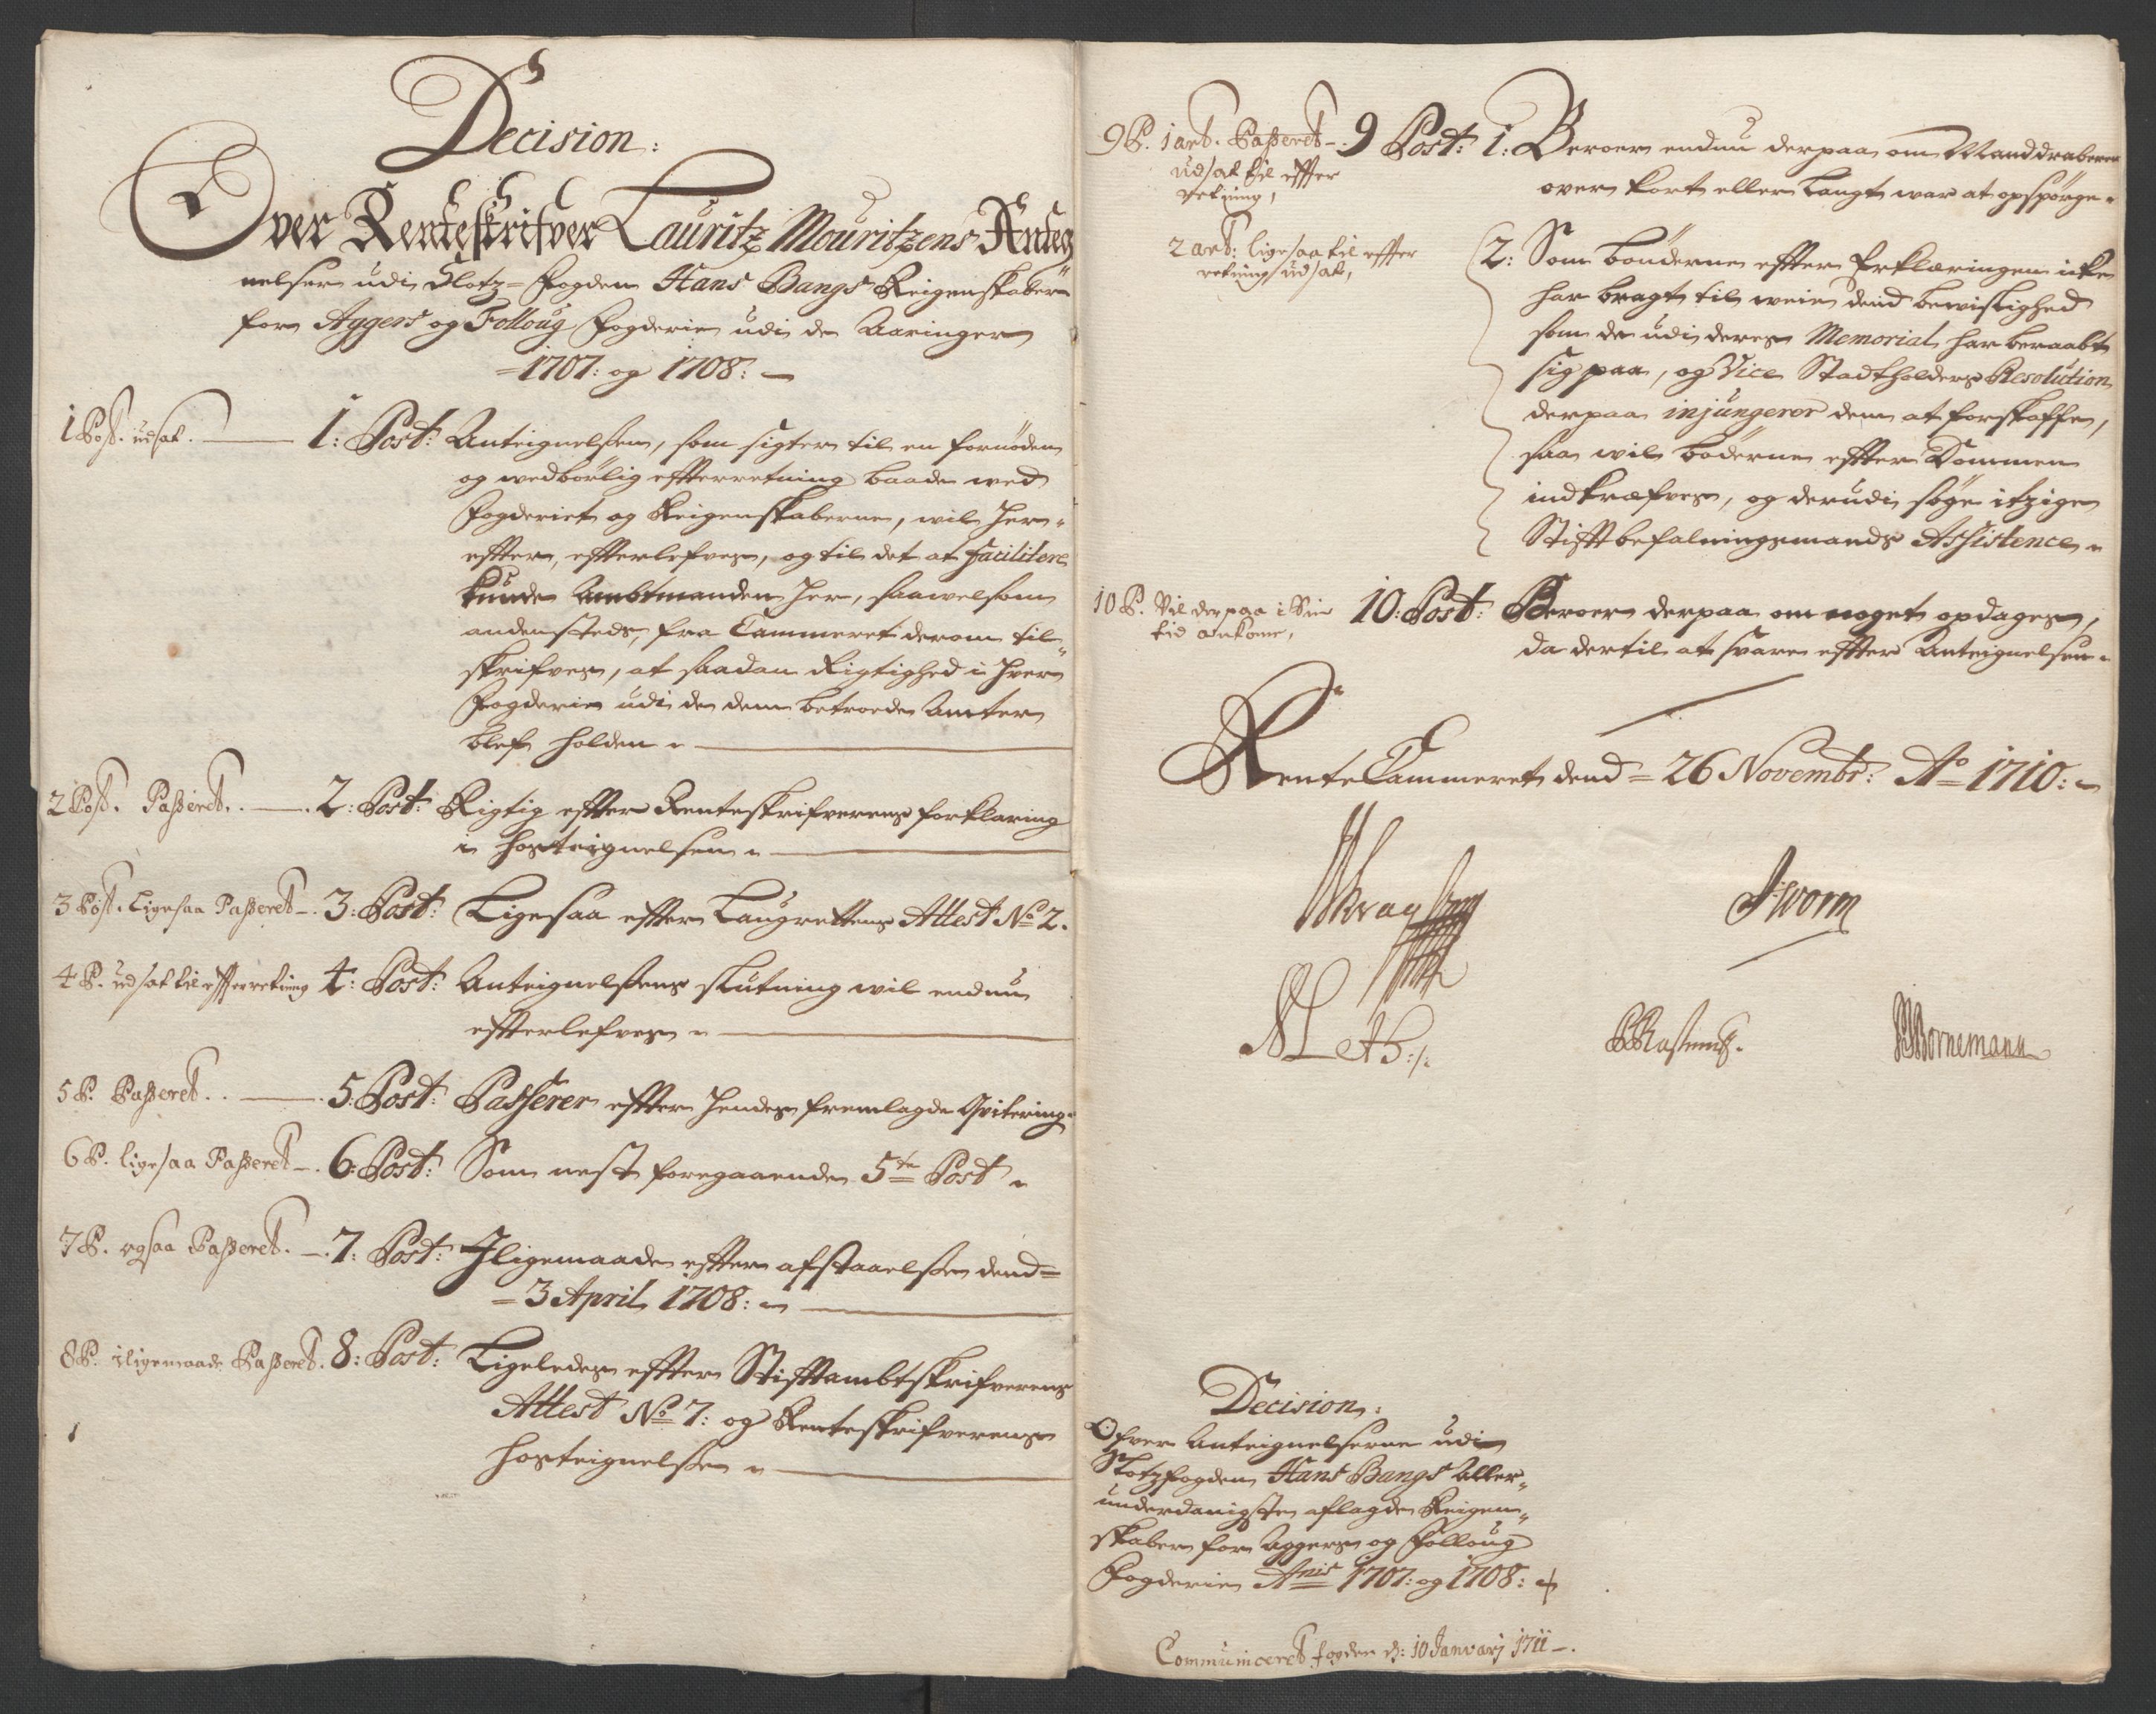 Decision:
Over Renteskrifver Lauritz Mouritzens Anteg
nelser udi Slotz-Fogden Hans Bangs Reigenskaber
for Aggers og Folloug Fogderie udi de Aaringer
1707: og 1708:
1 Post. udsat. 1: Post: Anteignelsen, som sigter til en fornöden
og wedbörlig effterretning baade wed
Fogderiet og Reigenskaberne, wil her-
effter, effterlefves, og til det at facilitere
kunde Ambtmanden her, saawelsom
andensteds, fra Cammeret derom til-
skrifves, at saadan Rigtighed i hver
Fogderie udi de dem betroede Amter
blef holden
2 Post. Passeret. 2: Post: Rigtig effter Renteskrifverens forklaring
i hosteignelsen
3 Post. Ligesaa Passeret 3: Post: Ligesaa effter Laugrettens Attest No 2.
4 P. udsat til effterretning 4: Post: Anteignelsens slutning wil endnu
effterlefves
5 P. Passeret. 5: Post: Passerer effter hendes fremlagde Qvitering
6 P. ligesaa Passeret 6: Post: Som nest foregaaende 5te Post
7 P. ogsaa Passeret. 7: Post: Iligemaade effter afstaaelsen dend
3 April 1708:
8 P. iligemaade Passeret. 8: Post: Ligeledes effter Stifftambtskrifverens
Attest No 7: og Renteskrifverens
hosteignelse
9 P. 1 art. Passeret 9 Post: 1: Beroer endnu derpaa om Manddraberen
udsat til effter
retning,
over kort eller langt war at opspörge
2 art: ligesaa til effter
retning udsat,
2: Som bönderne effter Erklæringen icke
har bragt til weie dend bewislighed
som de udi deres Memorial har beraabt
sig paa, og Vice Stadtholders Resolution
derpaa injungerer dem at forskaffe,
saa wil böderne effter Dommen
indkræfves, og derudi söge itzige
Stifftbefalningsmands Assistence
10 P. Vil derpaa i Sin
tid ankome,
10: Post: Beroer derpaa om noget opdages,
da dertil at svare effter Anteignelsen
RenteCammeret dend 26 Novembr: Ao 1710:
JWorm
Bornemann
Decision:
Ofver Anteignelserne udi
Slotzfogden Hans Bangs Aller-
underdanigste aflagde Reigen-
skaber for Aggers og Folloug
Fogderie Anis 1707: og 1708:
Communiceret fogden d: 10 Januarj 1711